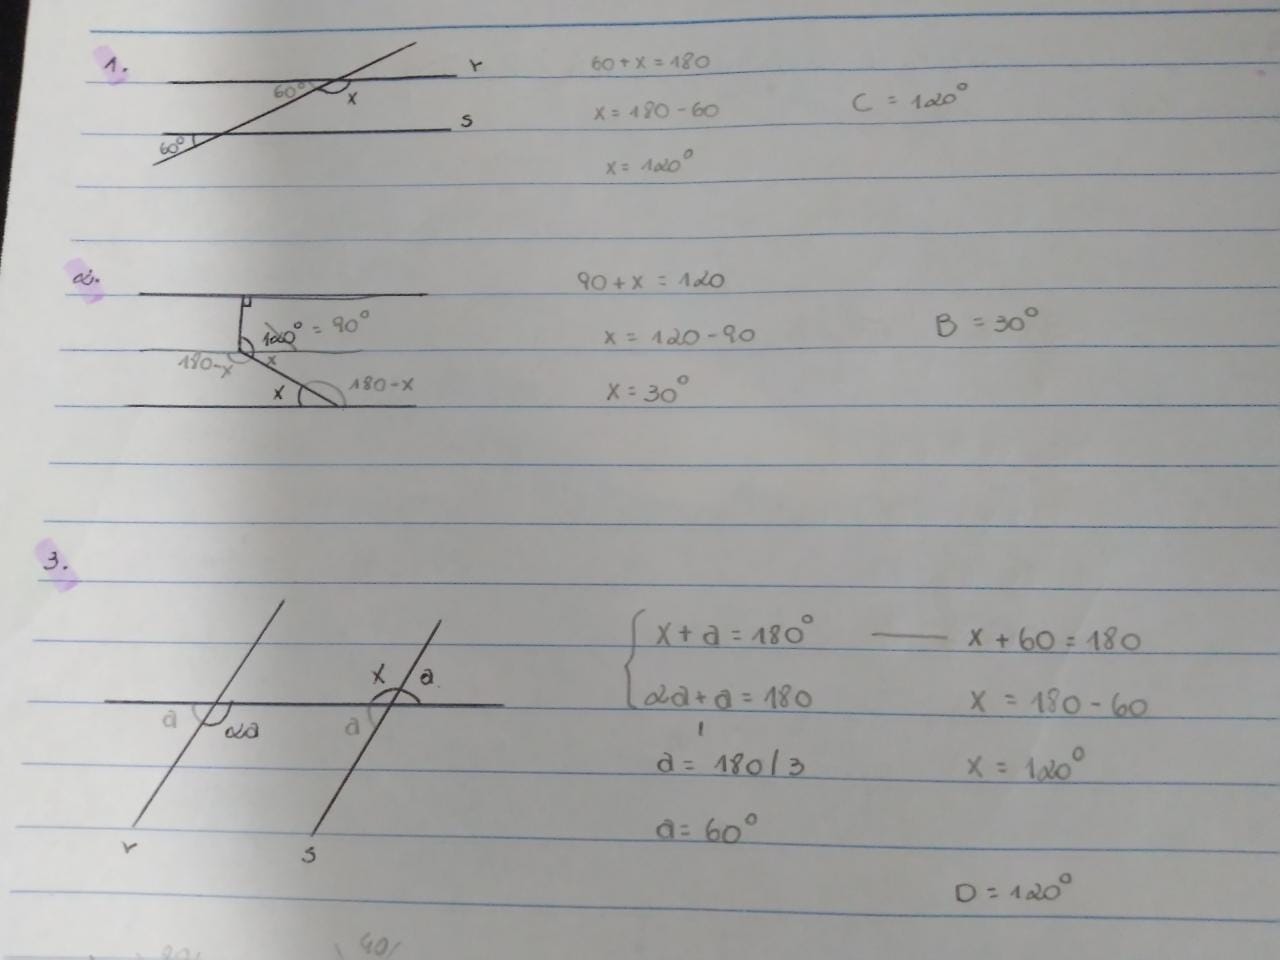 1.
r
60°
x
s
60°
60+x=180
x=180-60
x=120°
C = 120°
2.
120° = 90°
180-x
x
x
180-x
90+x=120
x=120-90
x=30°
B = 30°
3.
x a
a 2a a
r s
x+a=180° — x+60=180
2a+a=180 x = 180-60
a= 180/3 x=120°
a=60°
D=120°